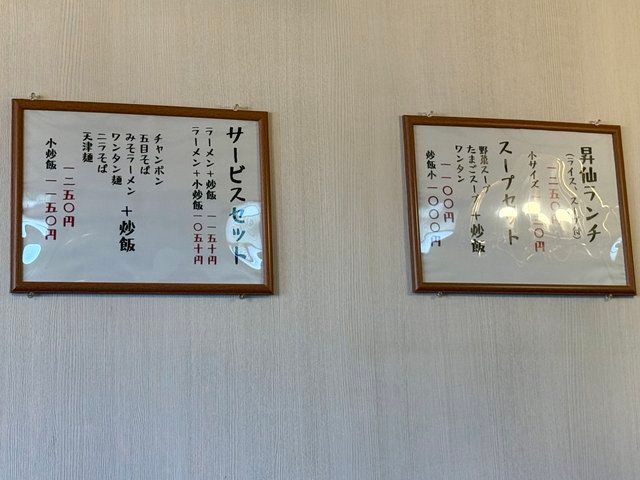 昇仙ランチ
(ライス、スープ付)
小サイズ
スープセット
野菜スープ
たまごスープ + 炒飯
ワンタン
一一〇〇円
炒飯小 一〇〇〇円
サービスセット
ラーメン+炒飯 一一五十円
ラーメン+小炒飯 一〇五十円
チャンポン
五目そば
みそラーメン + 炒飯
ワンタン麺
ニラそば
天津麺
一二五〇円
小炒飯 一一五〇円